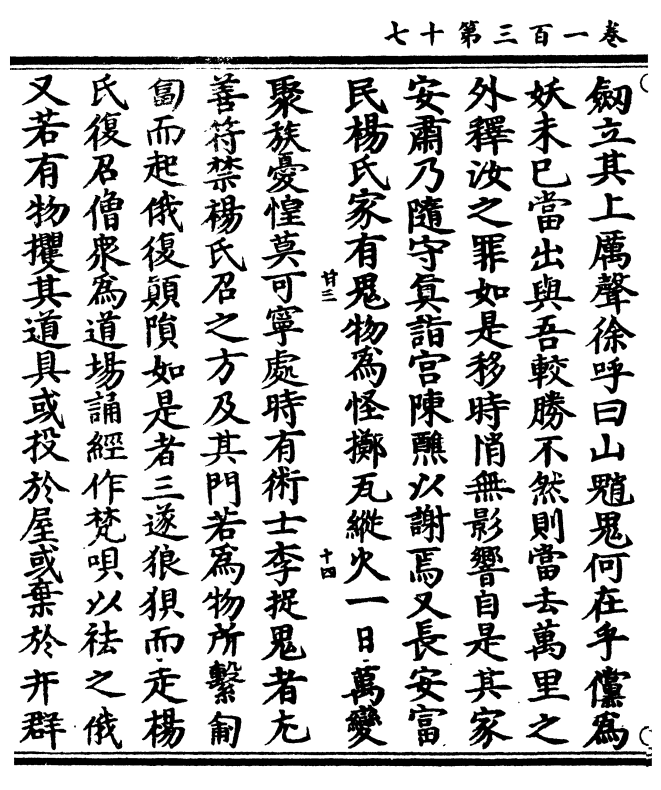 卷一百三第十七
劒立其上厲聲徐呼曰山魈鬼何在乎儻為
妖未已當出與吾較勝不然則當去萬里之
外釋汝之罪如是移時悄無影響自是其家
安肅乃隨守真詣宮陳醮以謝焉又長安富
民楊氏家有鬼物為怪擲瓦縱火一日萬變
廿三
十四
聚族憂惶莫可寧處時有術士李捉鬼者尤
善符禁楊氏召之方及其門若為物所繫匍
匐而起俄復顛隕如是者三遂狼狽而走楊
氏復召僧眾為道場誦經作梵唄以祛之俄
又若有物攫其道具或投於屋或棄於井群